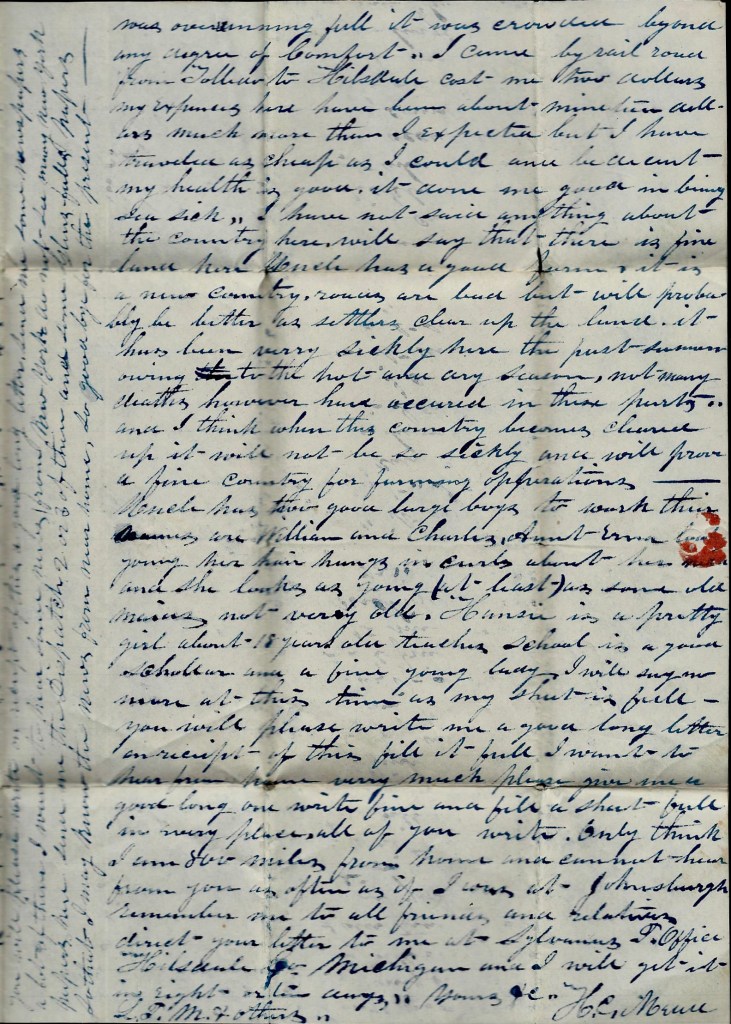 was overrunning full it was crowded beyond
any degree of Comfort.. I came by rail road
from Tolledo to Hilsdale cost me two dollars
my expences here have been about nineteen doll-
ars much more than I expected but I have
traveled as cheap as I could and be decent
my health is good. it done me good in being
sea sick,, I have not said anything about
the country here, will say that there is fine
land here Uncle has a good farm, it is
a new Country, roads are bad but will proba
bly be better as settlers clear up the land. it
has been verry sickly here the past summer
owing to the hot and dry season, not many
deaths however have accured in these parts..
and I think when this country becomes cleared
up it will not be so sickly and will prove
a fine Country for farming opperations
Uncle has two good large boys to work their
names are William and Charles, Aunt
young her hair hangs in curls about her
and she looks as young (at least) as some old
maids not verry old. is a pretty
girl about 18 years old teaches school is a good
schollar and a fine young lady, I will say no
more at this time as my sheet is full -
you will please write me a good long letter
on receipt of this fill it full I want to
hear from home verry much please give me a
good long one write fine and fill a sheet full
in every place, all of you write. Only think
I am 800 miles from home and cannot hear
from you as often as if I was at Johnsburgh
remember me to all friends and relatives
direct your letter to me at Sylvanus P. Office
Hilsdale Co. Michigan and I will get it
in eight or ten days,, Yours &c.
L. T. M. & others.. H.
you will please write on receipt of this and long letter, send me some newspapers
a lot of them I want to hear some news from New York do not see many New York
papers here send me the Dispatch 2 or 3 of them and some Glens falls papers
so that I may know the news from near home, so good bye for the present